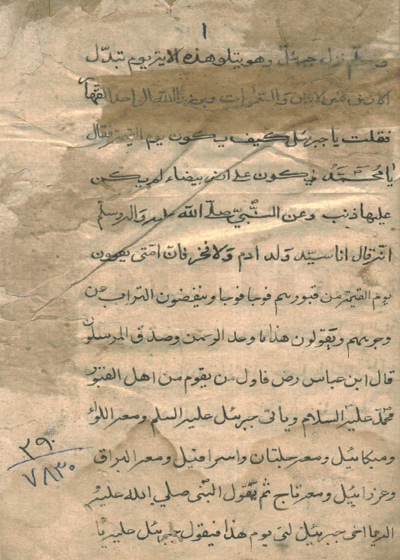 ١
وسلم نزل جبرئل وهو يتلو هذه الاية يوم تبدل
الارض غير الارض والسموات وبرزوا لله الواحد القهار
فقلت يا جبرئل كيف يكون يوم القيمة فقال
يا محمد يكون على ارض بيضاء لم يكن
عليها ذنب وعن النبي صلى الله عليه واله وسلم
انه قال انا سيد ولد ادم ولا فخر فان امتى يقومون
يوم القيمة من قبورهم فوجا فوجا وينفضون التراب عن
وجوههم ويقولون هذا ما وعد الرحمن وصدق المرسلون
قال ابن عباس رض فاول من يقوم من اهل القبور
محمد عليه السلام وياتى جبرئيل عليه السلم ومعه اللواء
وميكائيل ومعه حلتان واسرافيل ومعه البراق
وعزرائيل ومعه تاج ثم يقول النبى صلى الله عليه
يا اخى جبرئيل اى يوم هذا فيقول جبرئيل عليه يا
٣٩٠
٧٨٣٠